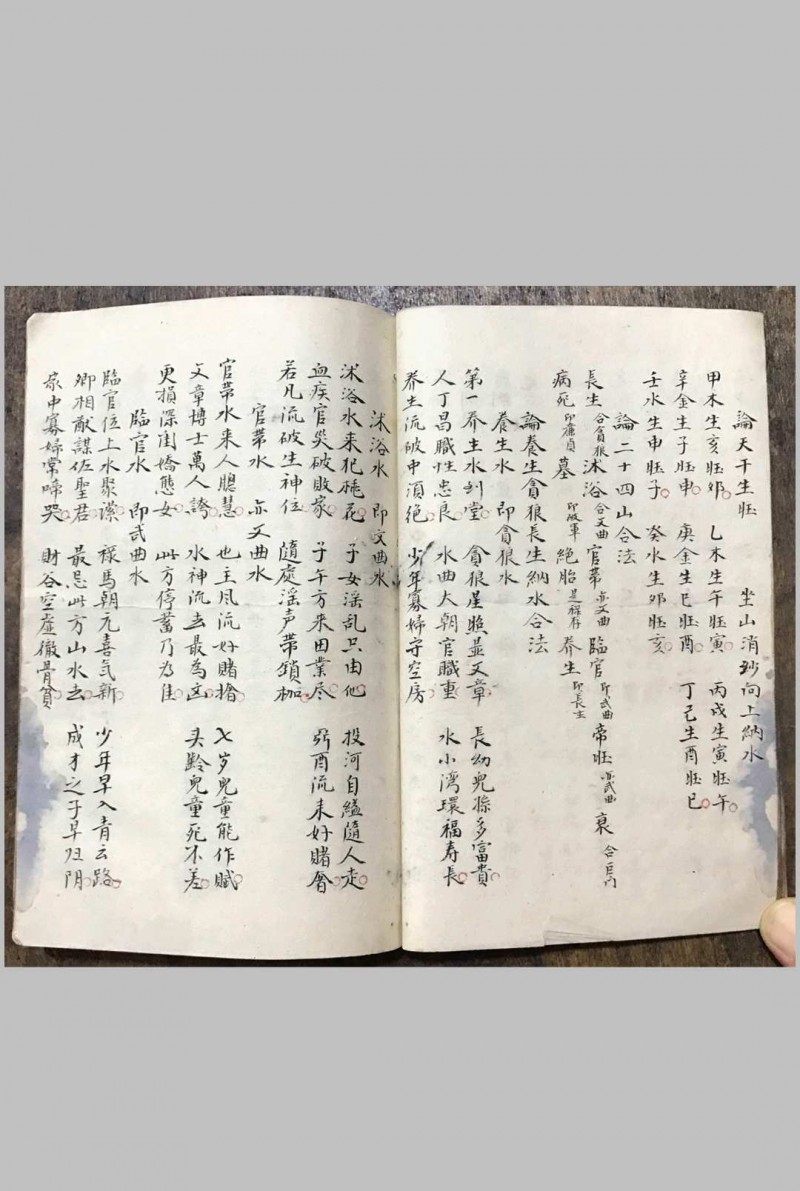 論天干生旺 坐山消砂向上納水
甲木生亥旺卯 乙木生午旺寅 丙戊生寅旺午
辛金生子旺申 庚金生巳旺酉 丁己生酉旺巳
壬水生申旺子 癸水生卯旺亥
論二十四山合法
長生 合貪狼 沐浴 合文曲 官帶 亦文曲 臨官 即武曲 帝旺 亦武曲 衰 合巨门
病死 即廉貞 墓 即破軍 絕胎 是祿存 养生 即長生
論養生貪狼長生納水合法
養生水 即貪狼水
第一养生水到堂 貪狼星照显文章 長幼兒孫多富貴
人丁昌熾性忠良 水曲大朝官職重 水小灣環福寿長
养生流破中須絕 少年寡婦守空房
沐浴水 即文曲水
沐浴水来犯桃花 子女淫乱只由他 投河自縊隨人走
血疾官灾破敗家 子午方来田業尽 卯酉流来好賭奢
若凡流破生神位 隨處淫声帶鎖枷
官帶水 亦文曲水
官帶水来人聰慧 也主风流好賭擔 七岁兒童能作賦
文章博士萬人誇 水神流去最為凶 头齡兒童死不差
更损深闺嬌態女 此方停蓄乃為佳
臨官水 即武曲水
臨官位上水聚深 祿馬朝元喜气新 少年早入青云路
卿相猷謀佐聖君 最忌此方山水去 成才之子早归阴
家中寡婦常啼哭 財谷空虛徹骨貧